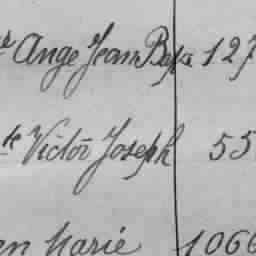 Ange Jean Bapte 127
Victor Joseph 55
Marie 1066